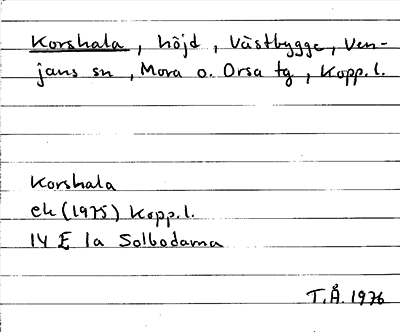 Korshala, höjd, Västbygge, Ven-
jans sn, Mora o. Orsa tg, Kopp. l.
Korshala
ek (1975) Kopp. l.
14 E 1a Solbodarna
T.Å. 1976